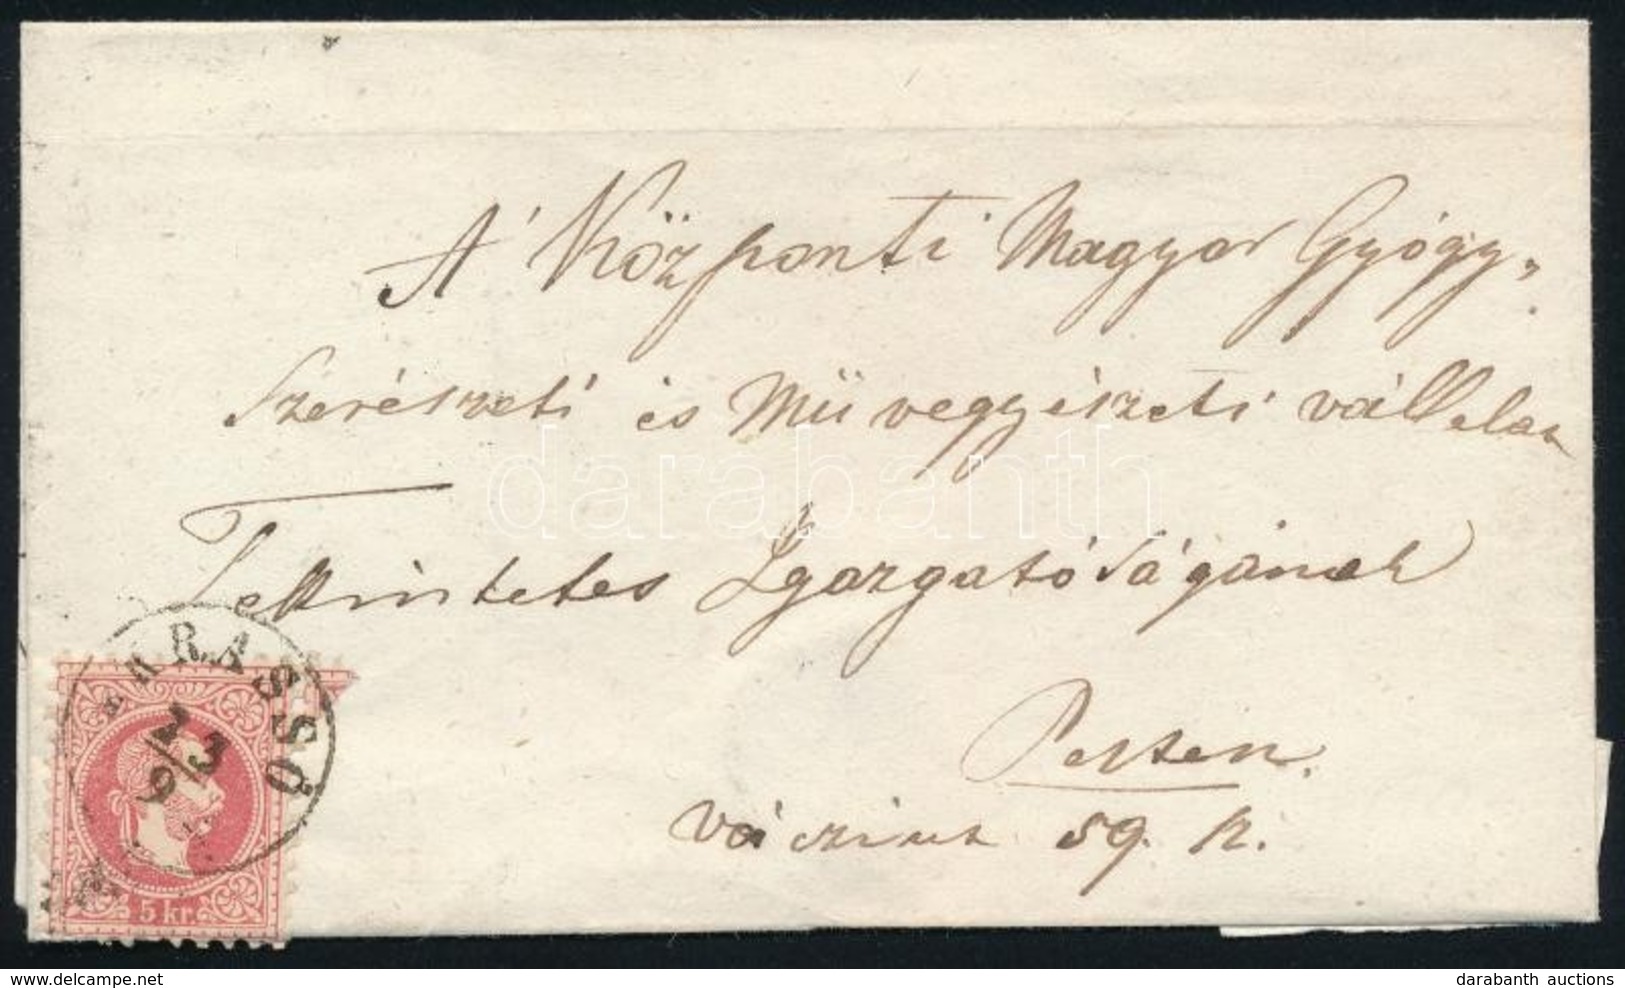 A' Központi Magyar Gyógy,,
Szerészeti és Művegyészeti vállalat
Tekintetes Igazgatóságának
Pesten.
váczi ut 59. sz.
darabanth
5 kr.
2/3
9
darabanth.com
darabanth auctions